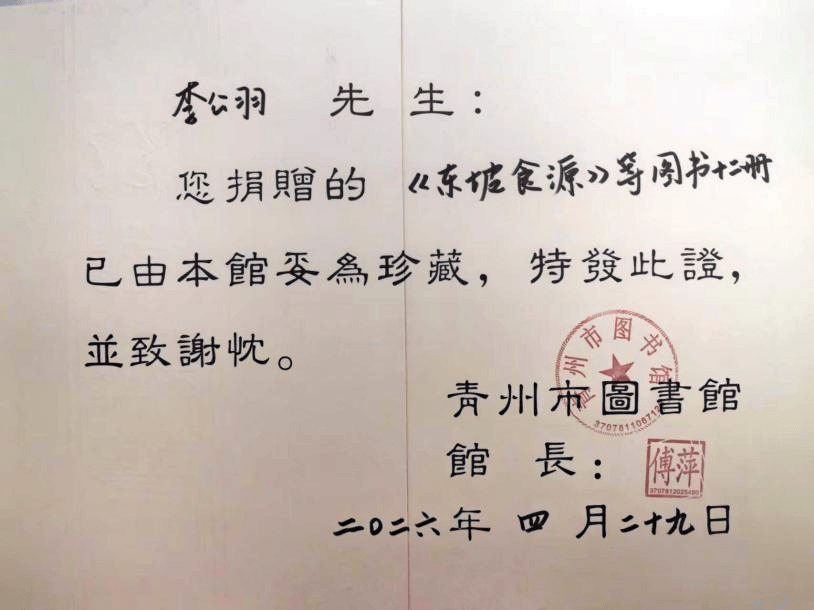 李公羽 先生：
您捐贈的 《东坡食源》等图书十二册
已由本館妥為珍藏，特發此證，
並致謝忱。
青州市图书馆
3707811067121
青州市圖書館
館長：
傅萍
3707812025480
二〇二六年 四 月二十九日